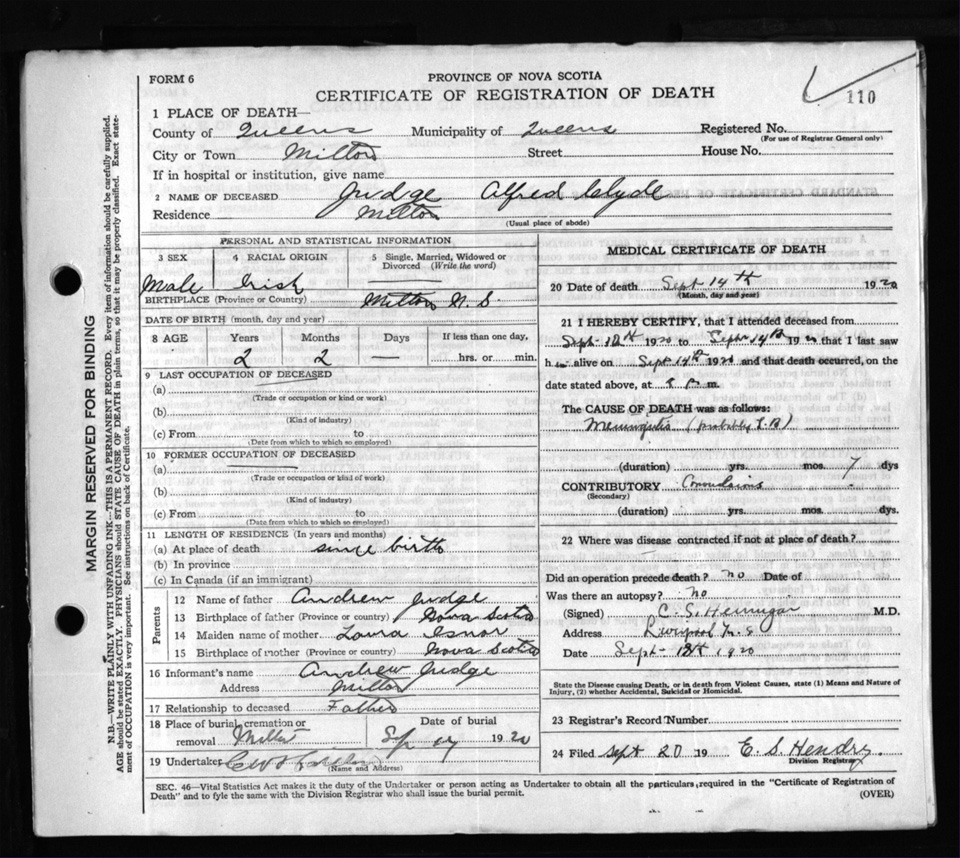 FORM 6
PROVINCE OF NOVA SCOTIA
CERTIFICATE OF REGISTRATION OF DEATH
110
1 PLACE OF DEATH—
County of Queens Municipality of Queens Registered No.
(For use of Registrar General only)
City or Town Milton Street House No.
If in hospital or institution, give name
2 NAME OF DECEASED Judge Alfred Clyde
Residence Milton
(Usual place of abode)
MARGIN RESERVED FOR BINDING
N.B.—WRITE PLAINLY WITH UNFADING INK—THIS IS A PERMANENT RECORD. Every item of information should be carefully supplied.
AGE should be stated EXACTLY. PHYSICIANS should STATE CAUSE OF DEATH in plain terms, so that it may be properly classified. Exact state-
ment of OCCUPATION is very important. See instructions on back of Certificate.
PERSONAL AND STATISTICAL INFORMATION
3 SEX 4 RACIAL ORIGIN 5 Single, Married, Widowed or
Divorced (Write the word)
Male Irish
BIRTHPLACE (Province or Country) Milton N. S.
DATE OF BIRTH (month, day and year)
8 AGE Years Months Days If less than one day,
2 2 — hrs. or min.
9 LAST OCCUPATION OF DECEASED
(a)
(Trade or occupation or kind or work)
(b)
(Kind of industry)
(c) From to
(Date from which to which so employed)
10 FORMER OCCUPATION OF DECEASED
(a)
(Trade or occupation or kind of work)
(b)
(Kind of industry)
(c) From to
(Date from which to which so employed)
11 LENGTH OF RESIDENCE (In years and months)
(a) At place of death since birth
(b) In province
(c) In Canada (if an immigrant)
Parents
12 Name of father Andrew Judge
13 Birthplace of father (Province or country) Nova Scotia
14 Maiden name of mother Laura Isnor
15 Birthplace of mother (Province or country) Nova Scotia
16 Informant's name Andrew Judge
Address Milton
17 Relationship to deceased Father
18 Place of burial, cremation or Date of burial
removal Milton Sep 17 1920
19 Undertaker
(Name and Address)
MEDICAL CERTIFICATE OF DEATH
20 Date of death Sept 14th 1920
(Month, day and year)
21 I HEREBY CERTIFY, that I attended deceased from
Sept 12th 1920 to Sept 14th 1920 that I last saw
him alive on Sept 14th 1920 and that death occurred, on
date stated above, at p m.
The CAUSE OF DEATH was as follows:
Meningitis (probably T.B)
(duration) yrs. mos. 7 dys
CONTRIBUTORY Convulsions
(Secondary)
(duration) yrs. mos. dys.
22 Where was disease contracted if not at place of death?
Did an operation precede death? no Date of
Was there an autopsy? no
(Signed) C. S. Hennigar M.D.
Address Liverpool N. S
Date Sept 1920
State the Disease causing Death, or in death from Violent Causes, state (1) Means and Nature of
Injury, (2) whether Accidental, Suicidal or Homicidal.
23 Registrar's Record Number
24 Filed Sept 20 19 E. S. Hendry.
Division Registrar
SEC. 46—Vital Statistics Act makes it the duty of the Undertaker or person acting as Undertaker to obtain all the particulars required in the "Certificate of Registration of
Death" and to fyle the same with the Division Registrar who shall issue the burial permit.
(OVER)